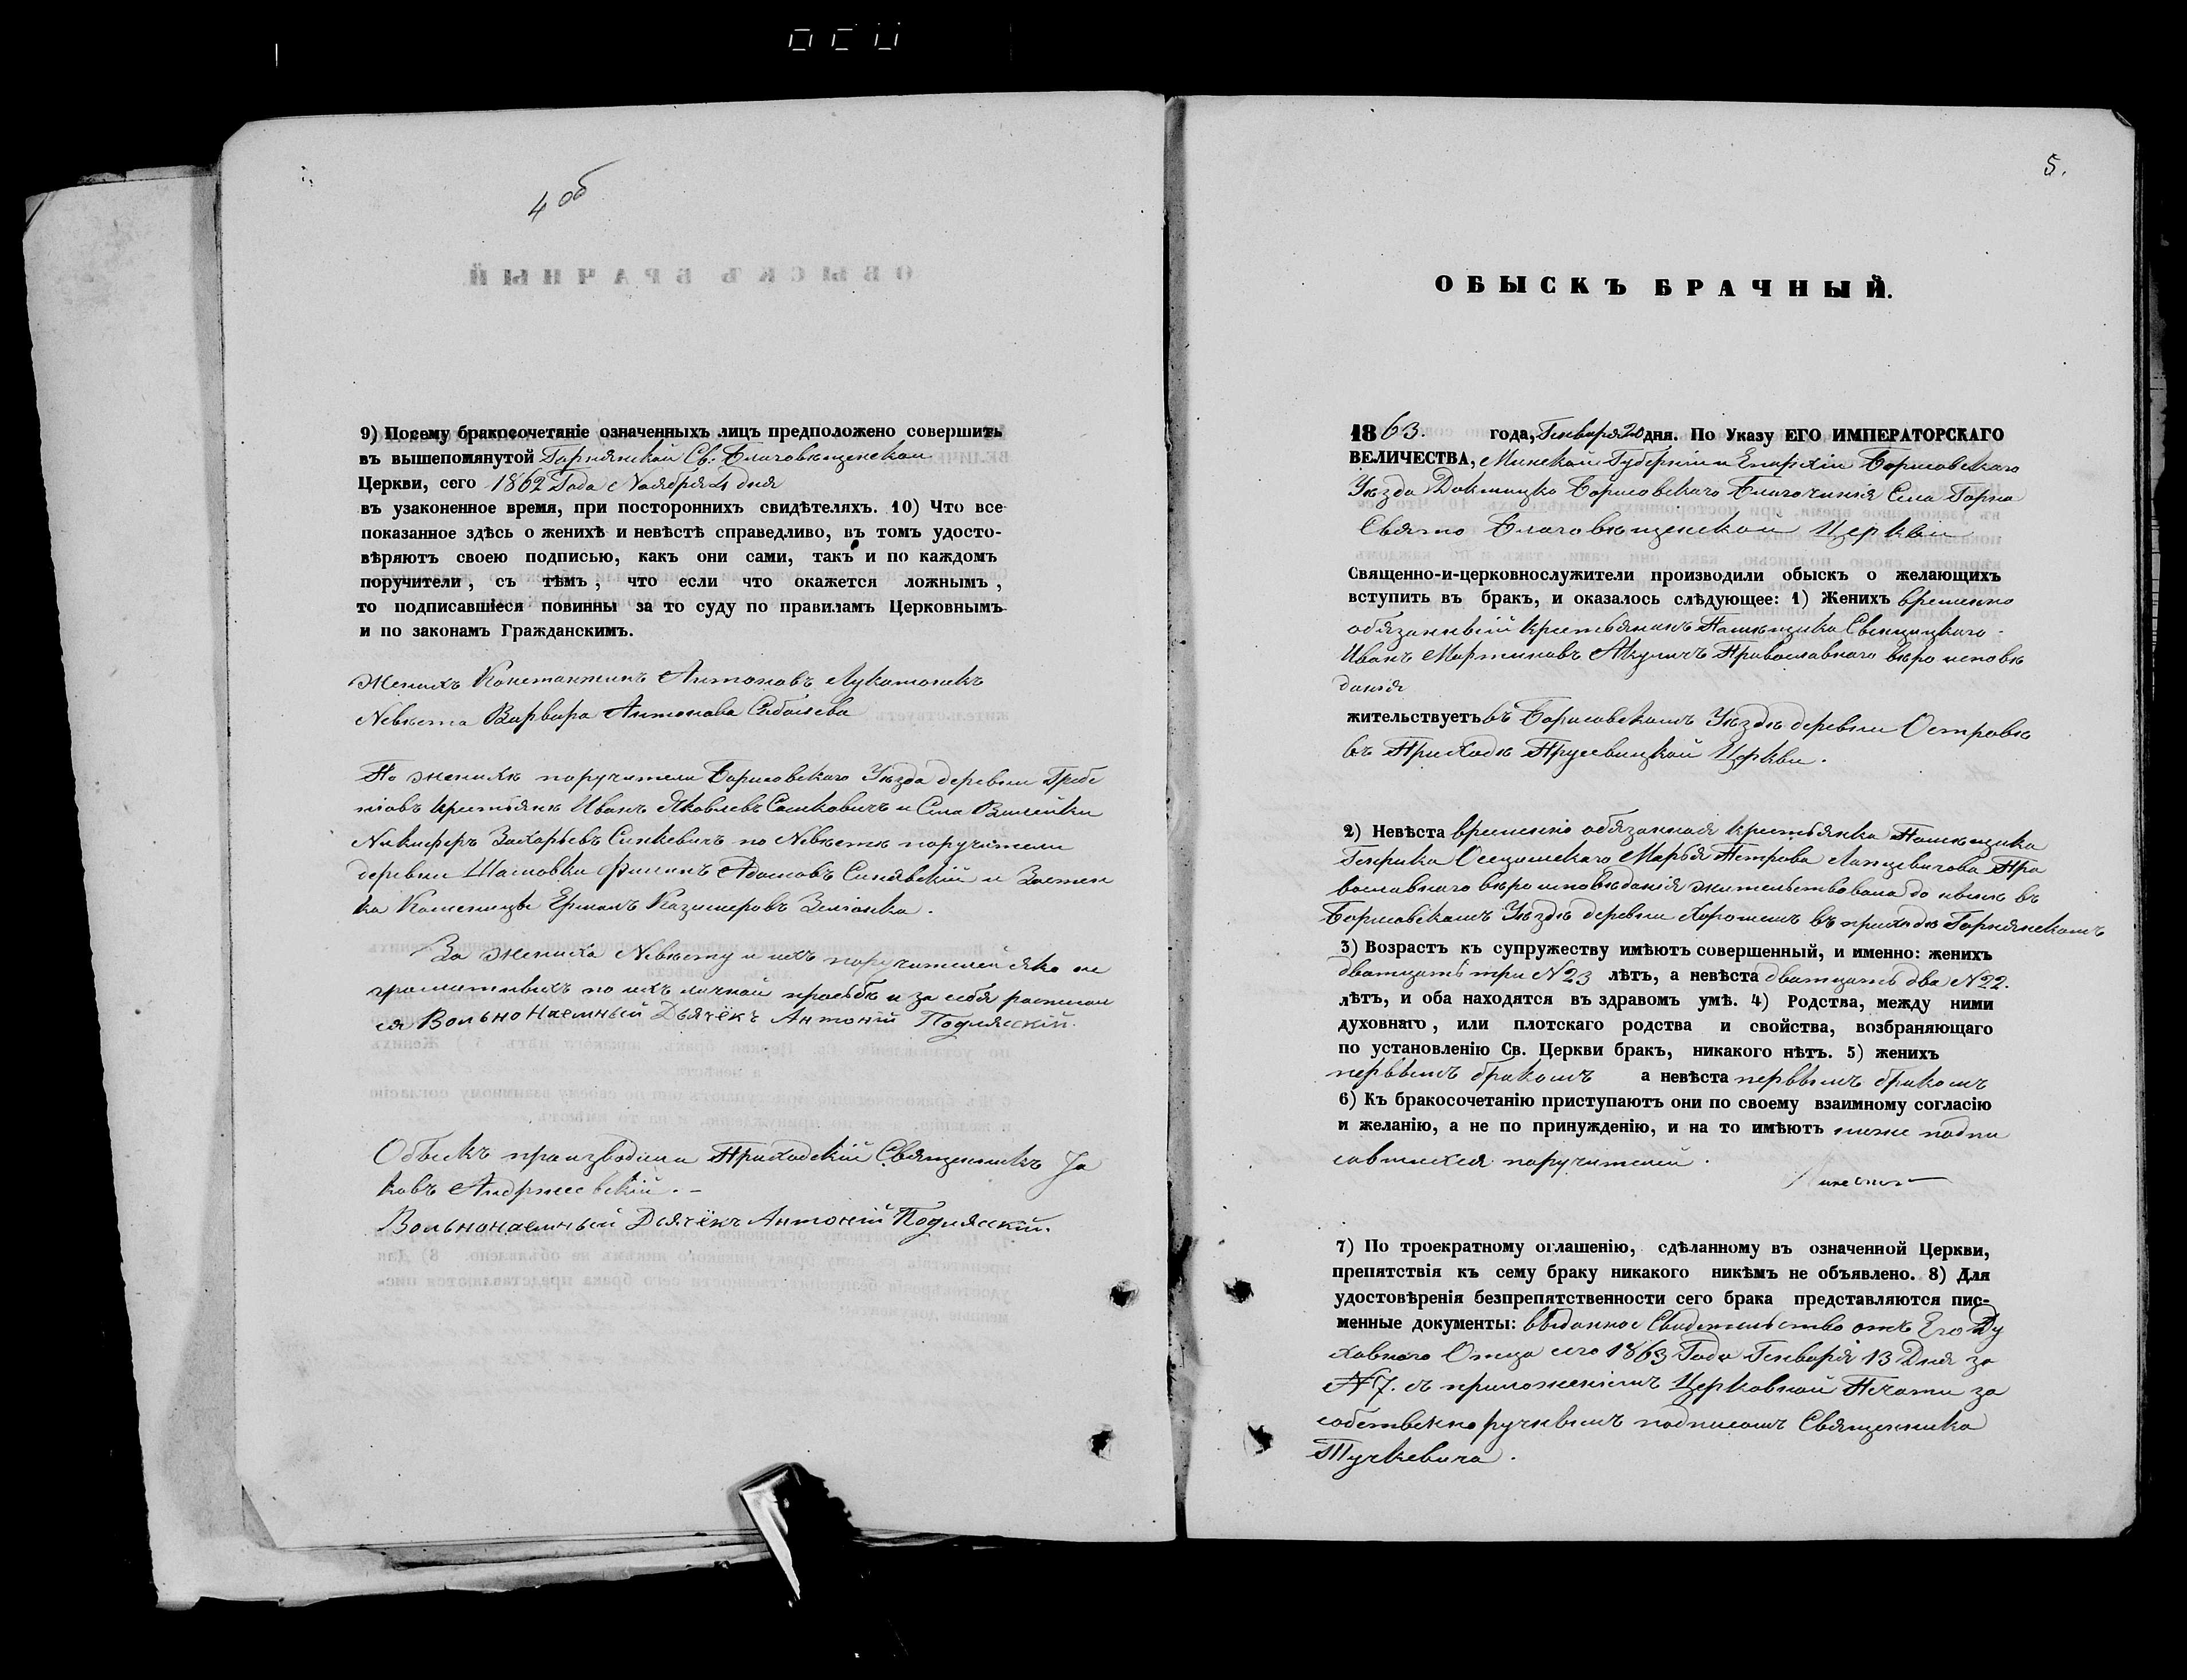 4 об
9) Посему бракосочетаніе означенныхъ лицъ предположено совершить
въ вышепомянутой Горнянской Св: Благовѣщенской
Церкви, сего 1862 Года Ноября 4 дня
въ узаконенное время, при постороннихъ свидѣтеляхъ. 10) Что все
показанное здѣсь о женихѣ и невѣстѣ справедливо, въ томъ удосто-
вѣряютъ своею подписью, какъ они сами, такъ и по каждомъ
поручители, съ тѣмъ, что если что окажется ложнымъ,
то подписавшіеся повинны за то суду по правиламъ Церковнымъ
и по законамъ Гражданскимъ.
Женихъ Константинъ Антоновъ Лукатонекъ
Невѣста Варвара Антонова
По женихѣ поручители Борисовскаго Уѣзда деревни Гребе
ніовъ крестьяне Иванъ Яковлевъ Сашковичъ и Села Вилейки
Никифоръ Захарьевъ Синкевичъ по Невѣстѣ поручители
деревни Шашовки Филипъ Адамовъ Синявскій и Застен
ка Каменицы Ермолъ Казимеровъ Зеліонка.
За жениха Невѣсту и ихъ поручителей яко не
грамотныхъ по ихъ личной просьбѣ и за себя росписал
ся Вольно Наемный Дьячёкъ Антоній Подлясскій.
Обыскъ производили Приходскій Священникъ Іа
ковъ Андржеевскій. –
Вольнонаемный Дьячёкъ Антоній Подлясскій.
5.
ОБЫСКЪ БРАЧНЫЙ.
1863. года, Генваря 20 дня. По Указу ЕГО ИМПЕРАТОРСКАГО
ВЕЛИЧЕСТВА, Минской Губерніи и Епархіи Борисовскаго
Уѣзда Докшицко Борисовскаго Благочинія Села Горна
Свято Благовѣщенской Церкви
Священно-и-церковнослужители производили обыскъ о желающихъ
вступить въ бракъ, и оказалось слѣдующее: 1) Женихъ временно
обязанный крестьянинъ Помѣщика Свенцицкаго
Иванъ Мартиновъ Акуличъ Православнаго вѣро исповѣ
данія
жительствуетъ въ Борисовскомъ Уѣздѣ деревни Островѣ
въ Приходѣ Прусевицкой Церкви.
2) Невѣста временно обязанная крестьянка Помѣщика
Генрика Марья Петрова Лапцевичова Пра
вославнаго вѣро исповѣданія жительствовала до нынѣ въ
Борисовскомъ Уѣздѣ деревни Хорошемъ въ приходѣ Горнянскомъ
3) Возрастъ къ супружеству имѣютъ совершенный, и именно: женихъ
дватцать три №23 лѣтъ, а невѣста дватцать два №22.
лѣтъ, и оба находятся въ здравомъ умѣ. 4) Родства, между ними
духовнаго, или плотскаго родства и свойства, возбраняющаго
по установленію Св. Церкви бракъ, никакого нѣтъ. 5) женихъ
первымъ бракомъ а невѣста первымъ бракомъ
6) Къ бракосочетанію приступаютъ они по своему взаимному согласію
и желанію, а не по принужденію, и на то имѣютъ ниже подпи
савшихся поручителей.
7) По троекратному оглашенію, сдѣланному въ означенной Церкви,
препятствія къ сему браку никакого никѣмъ не объявлено. 8) Для
удостовѣренія безпрепятственности сего брака представляются пис-
менные документы: выданное Свидетельство отъ Его Ду
ховнаго Отца сего 1863 Года Генваря 13 Дня за
№7. съ приложеніемъ Церковной Печати за
собственноручнымъ подписомъ Священника
Тучкевича.